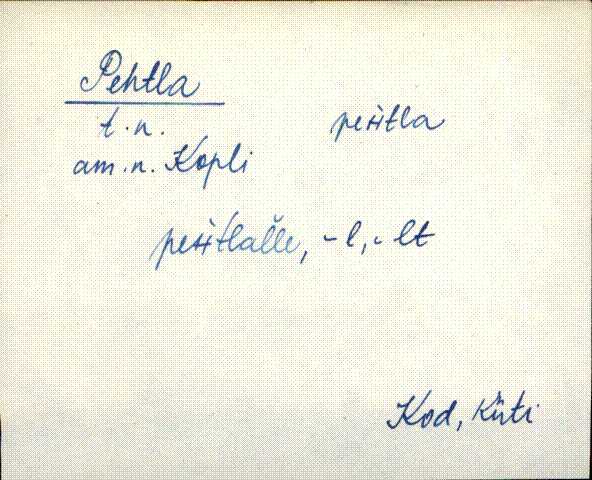 Pehtla
t.n. pehtla
am.n. Kopli
pehtlalle, -l, -lt
Kod, Küti